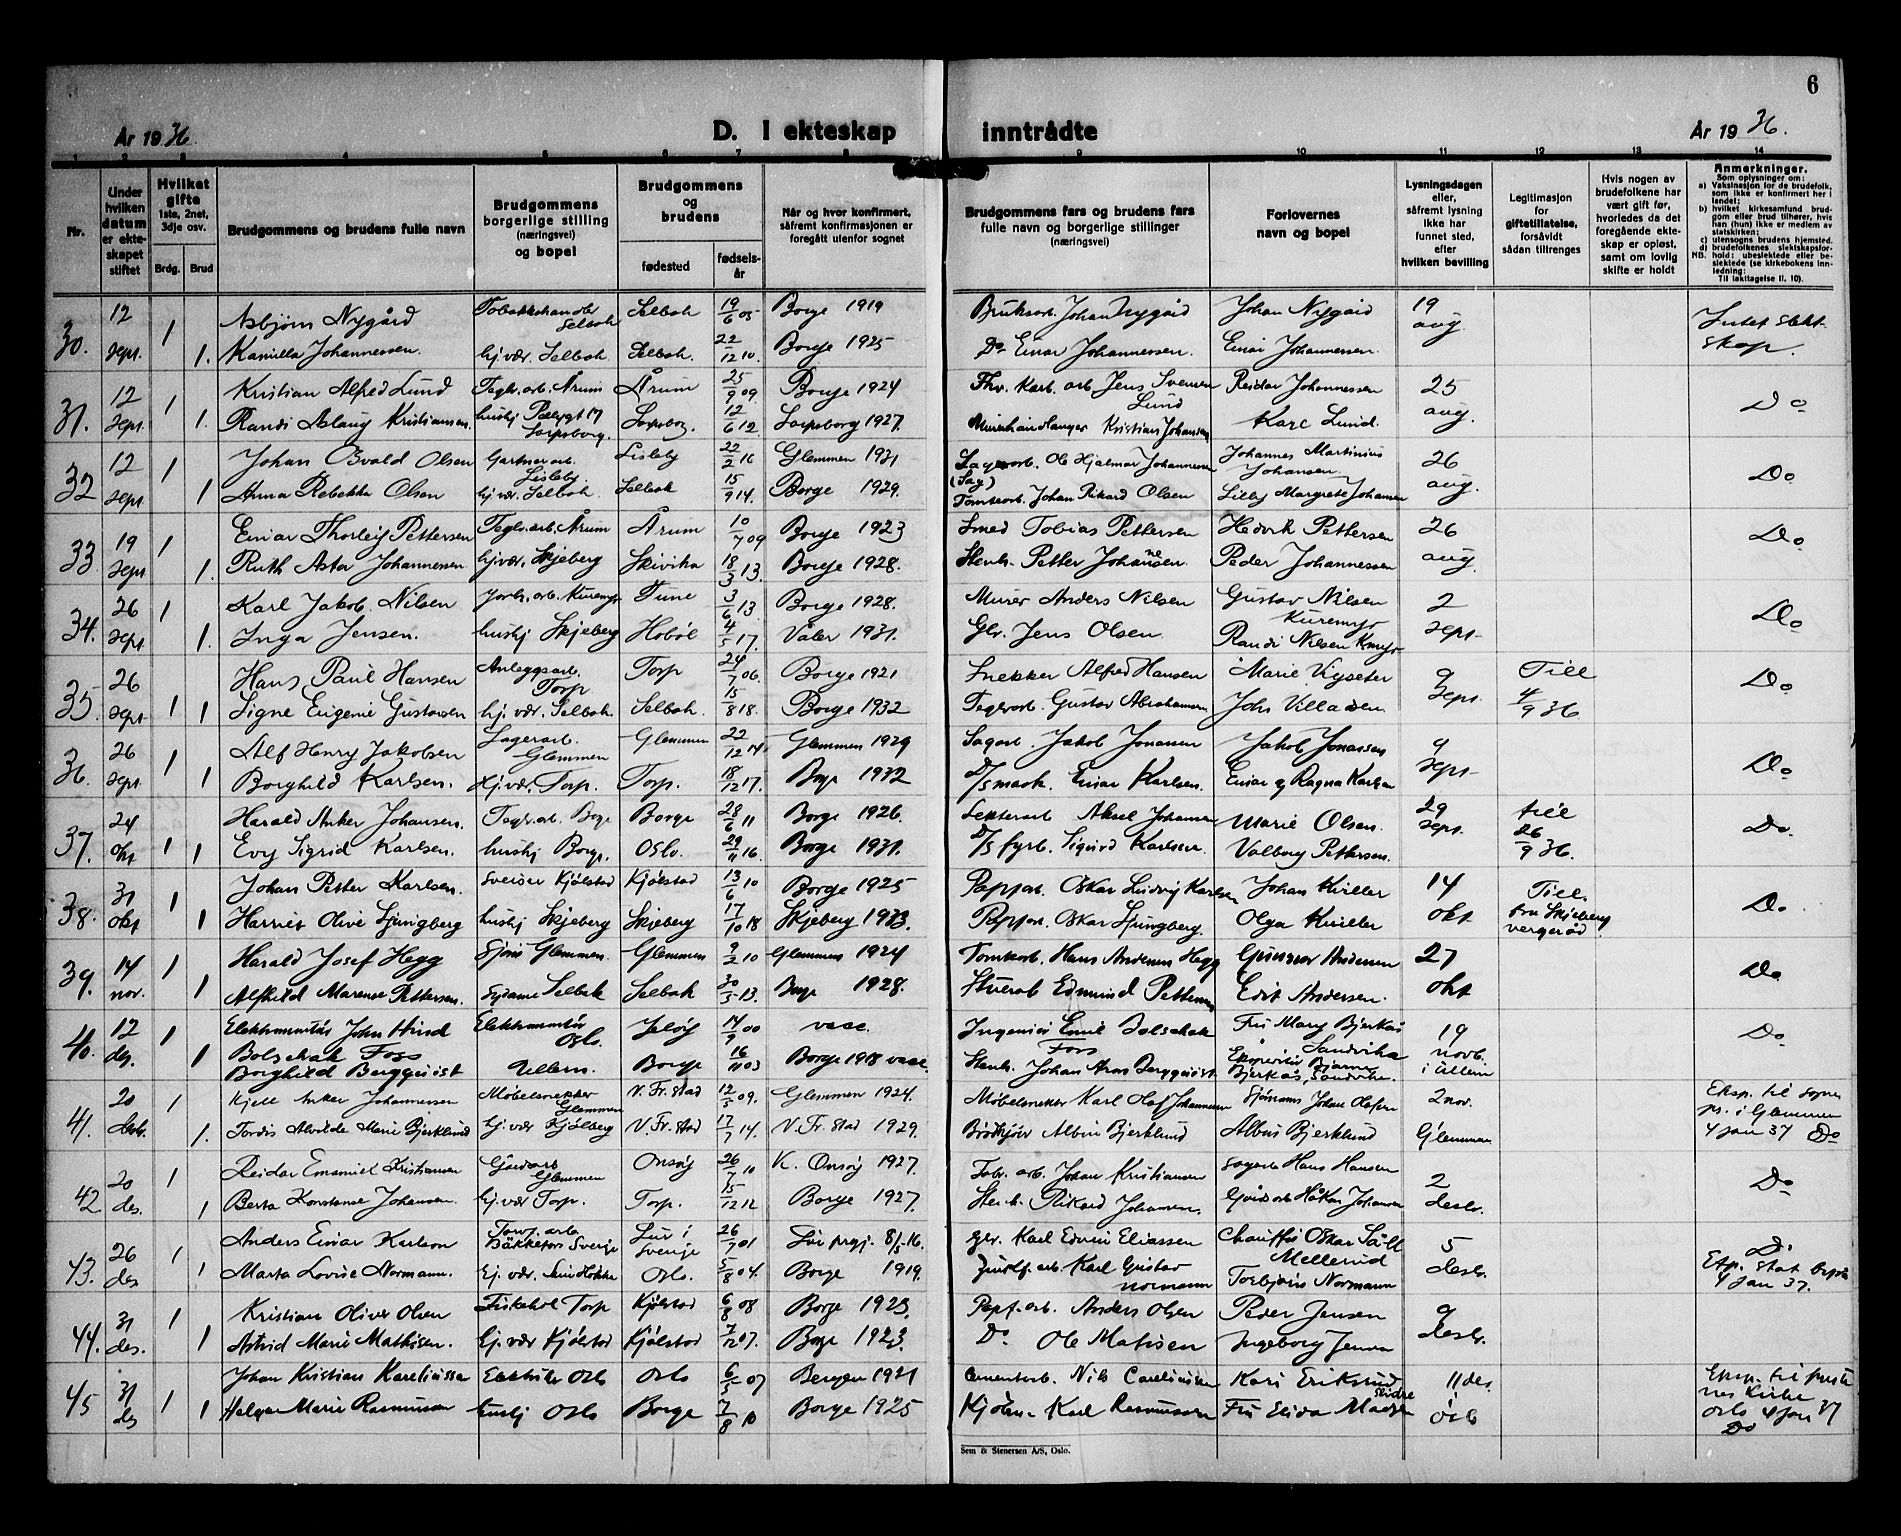 6
År 1936. D. I ekteskap inntrådte År 1936.
1 2 3 4 5 6 7 8 9 10 11 12 13 14
Nr.
Under hvilken datum er ekteskapet stiftet
Hvilket gifte 1ste, 2net, 3dje osv.
Brdg. Brud
Brudgommens og brudens fulle navn
Brudgommens borgerlige stilling (næringsvei) og bopel
Brudgommens og brudens
fødested fødselsår
Når og hvor konfirmert, såfremt konfirmasjonen er foregått utenfor sognet
Brudgommens fars og brudens fars fulle navn og borgerlige stillinger (næringsvei)
Forlovernes navn og bopel
Lysningsdagen eller, såfremt lysning ikke har funnet sted, efter hvilken bevilling
Legitimasjon for giftetillatelse, forsåvidt sådan tiltrenges
Hvis nogen av brudefolkene har vært gift før, hvorledes da det foregående ekteskap er opløst, samt om lovlig skifte er holdt
Anmerkninger.
Som oplysninger om:
a) Vaksinasjon for de brudefolk, som ikke er konfirmert her i landet;
b) hvilket kirkesamfund brudgom eller brud tilhører, hvis han (hun) ikke er medlem av statskirken;
c) utensogns brudens hjemsted.
d) brudefolkenes slektskapsforhold: ubeslektede eller beslektede (se kirkebokens innledning:
NB. Til iakttagelse II. 10).
30. 12 sept. 1 Asbjørn Nygård Selbak Selbak 19/6 05 Borge 1919 Johan Nygård Johan Nygård 19 aug
1. Kamilla Johannessen. hj.vær. Selbak Selbak. 22/12 10. Borge 1925 Do Einar Johannessen. Einar Johannessen.
31. 12 sept. 1 Kristian Alfred Lund Teglv.arb. Årum Årum 25/9 09. Borge 1924 Karb. arb Jens Lund Reidar Johannessen 25 aug. Do
1. Randi Aslaug Kristiansen. hushj Sarpsborg. Sarpsborg. 12/6 12. Sarpsborg 1927. Kristian Johansen Kare Lund.
32 12 sept 1 Johan Osvald Olsen Gartnerarb. Lisleby Lisleby 22/2 16 Glemmen 1931 Ole Hjalmar Johannessen (Sag) Johannes Martinius Johansen. 26 aug. Do
1 Anna Rebekka Olsen hj.vær. Selbak. Selbak 15/9 14. Borge 1929. Tomtearb. Johan Rikard Olsen Lilly Margrete Johansen
33 19 sept 1 Einar Thorleif Pettersen Teglv.arb. Årum Årum 10/7 09 Borge 1923 Smed Tobias Pettersen Hedvik Pettersen 26 aug. Do
1. Ruth Asta Johannessen hj.vær. Skjeberg Skivika 18/3 13. Borge 1928. Stenh. Petter Johansen Peder Johannessen
34. 26 sept. 1 Karl Jakob. Nilsen Jorbr. arb. Kuremyr Tune 3/6 13. Borge 1928. Murer Anders Nilsen Gustav Nilsen Kuremyr 2 sept. Do
1. Inga Jensen. hushj Skjeberg Hobøl 4/5 17. Våler 1931. Jens Olsen Randi Nilsen
35 26 sept 1 Hans Paul Hansen Anleggsarb. Torp Torp 24/7 06. Borge 1921 Snekker Alfred Hansen Marie 9 sept. Till 4/9 36 Do
1 Signe Eugenie Gustavsen hj.vær. Selbak Selbak. 15/8 18. Borge 1932 Teglv.arb. Gustav Abrahamsen Johs Villadsen
36. 26 sept 1 Alf Henry Jakobsen Lagerarb. Glemmen Glemmen 22/12 14 Glemmen 1929 Sagarb. Jakob Jonassen Jakob Jonassen 9 sept. Do
1 Borghild Karlsen. Hj.vær. Torp. Torp. 18/12 17. Borge 1932 D/S mask. Einar Karlsen. Einar og Ragna Karlsen
37. 24 okt 1 Harald Anker Johansen. Teglv.arb Borge Borge 28/6 11 Borge 1926. Aksel Johansen Marie Olsen. 29 sept. till 26/9 36. Do.
1 Evy Sigrid Karlsen. hushj Borge. Oslo. 29/11 16. Borge 1931. D/S fyrb. Sigurd Karlsen. Valborg Pettersen.
38. 31 okt 1 Johan Petter Karlsen. Sveiser Kjølstad Kjølstad 13/6 10 Borge 1925 Papparb. Oskar Ludvig Karlsen Johan Kviller 14 okt Till. fra Skjeberg vergeråd Do
1 Harriet Olive Ljungberg hushj Skjeberg Skjeberg 17/10 18 Skjeberg 1933. Papparb. Oskar Ljungberg. Olga Kviller
39. 14 nov. 1 Harald Josef Hegg Glemmen. Glemmen 9/2 10 Glemmen 1924 Tomtearb. Hans Andersen Hegg Gunnar Andersen 27 okt Do
1 Alfhild Marense Pettersen. Sydame Selbak Selbak 30/5 13. Borge 1928. Edmund Pettersen Edit Andersen.
40. 12 des. 1 Elektromontør John Hind Bolschak Foss Elektromontør Oslo. Jeløy 14/9 00 vacc. Ingeniør Emil Bolschak Foss Fru Mary Bjerkås Sandvika 19 novb. i Ullern Do
1 Borghild Bergquist Ullern. Borge 16/11 03 Borge 1918 vacc. Stenh. Johan Aron Bergquist Bjarne Bjerkås, Sandvika.
41. 20 desb. 1 Kjell Anker Johannessen Møbelsnekker Glemmen V. Fr.stad 12/5 09. Glemmen 1924. Møbelsnekker Karl Olaf Johannessen Johan Olafsen 2 nov. Glemmen Eksp. til sogneps. i Glemmen 4 jan 37 Do
1. Tordis Alvilde Marie Bjerklund hj.vær Kjølberg V. Fr.stad 17/7 14. V. Fr.stad 1929. Albin Bjerklund Albin Bjerklund
42 20 des. 1 Reidar Emanuel Kristiansen Glemmen Onsøy 26/7 10 K. Onsøy 1927. Fabr. arb. Johan Kristiansen Hans Hansen 2 desb. Do
1 Berta Konstanse Johansen. hj.vær Torp. Torp. 15/12 12 Borge 1927. Rikard Johansen. Håkon Johansen
43. 26 des 1 Anders Einar Karlson Bäckefors Sverige Lur i Sverige 26/7 01 Lur 8/5-16. Karl Edvin Eliassen Chauffør Oskar Mellerud 5 desb. Do Eksp. 4 jan 37.
1 Marta Lovise Normann. hj.vær. Oslo. 5/8 04. Borge 1919. Karl Gustav Normann Torbjørn Normann
44. 31 des. 1 Kristian Oliver Olsen Torp Kjølstad 6/8 08 Borge 1923. Papf.arb. Anders Olsen Peder Jensen 9 desb.
1 Astrid Marie Mathisen. hj.vær Kjølstad Kjølstad 7/12 07. Borge 1923. Do. Ole Matisen Ingeborg Jensen
45 31 des 1 Johan Kristian Kareliussen Elektriker Oslo Oslo 6/5 07 Bergen 1921 Cementarb. Nils Careliussen Kari Eriksrud Slidre 11 des. Oslo Eksp. til Oslo 4 jan 37 Do
1 Helga Marie Rasmussen hushj Oslo Borge 7/8 10 Borge 1925 Karl Rasmussen Fru Elida Madsen
Sem & Stenersen A/S, Oslo.